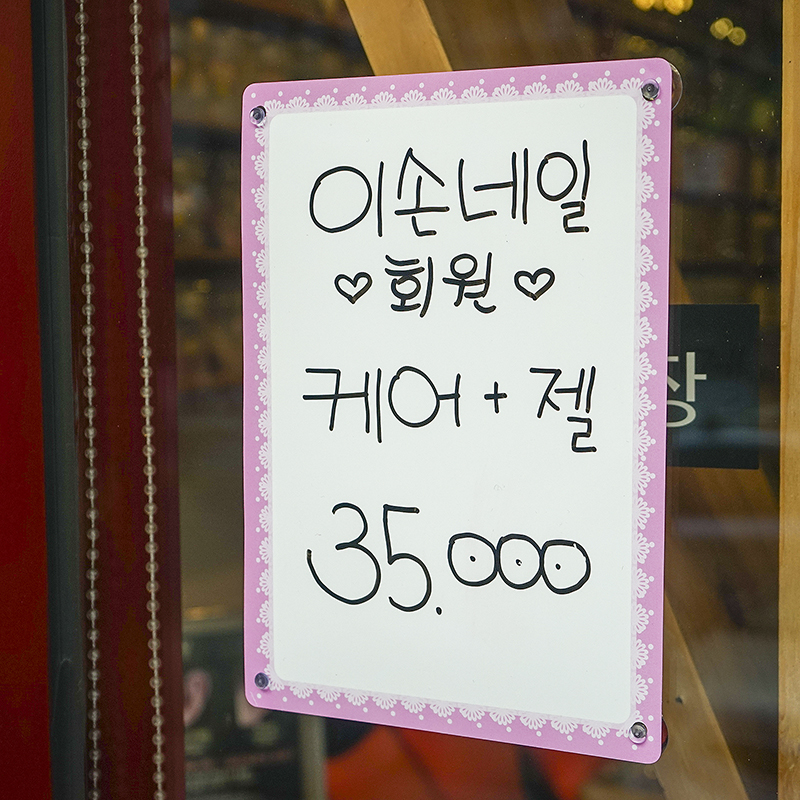 이손네일
♡ 회원 ♡
케어 + 젤
35.000
장